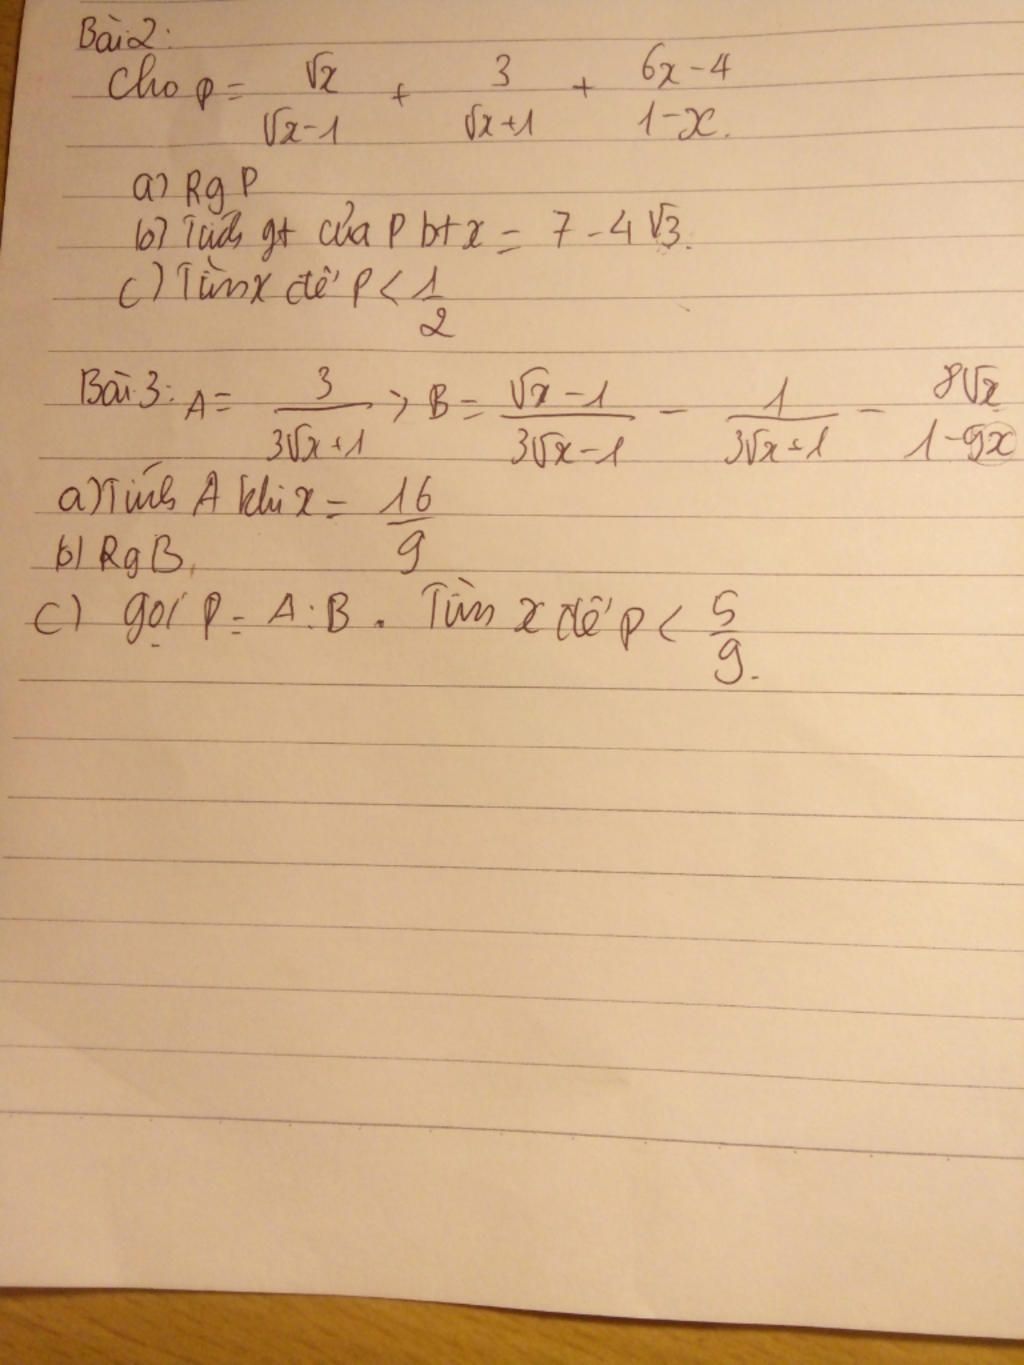 Bài 2:
Cho P = √x/(√x-1) + 3/(√x+1) + (6x-4)/(1-x).
a) Rg P
b) Tính gt của P bt x = 7 - 4√3.
c) Tìm x để P < 1/2
Bài 3: A = 3/(3√x+1) ; B = (√x-1)/(3√x-1) - 1/(3√x+1) - 8√x/(1-9x)
a) Tính A khi x = 16/9
b) Rg B.
c) gọi P = A : B . Tìm x để P < 5/9.